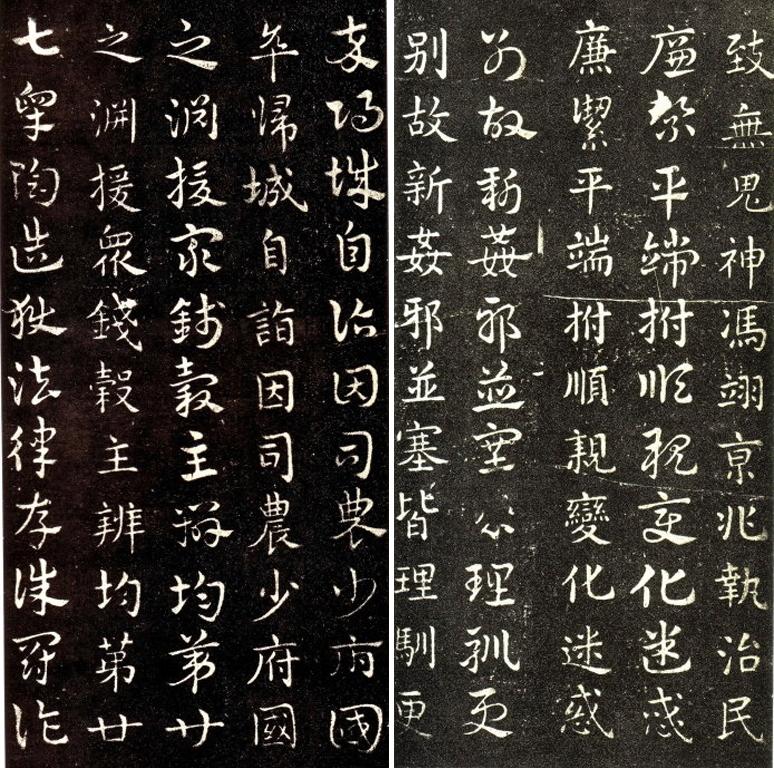 致無鬼神馮翊京兆執治民
廉絜平端拊順親變化迷惑
廉潔平端拊順親變化迷惑
別故新姦邪並塞皆理馴更
別故新姦邪並塞皆理馴更
卒歸城自詣因司農少府國
卒歸城自詣因司農少府國
之淵援眾錢穀主辨均第廿
之淵援眾錢穀主辨均第廿
七皋陶造獄法律存誅罰詐